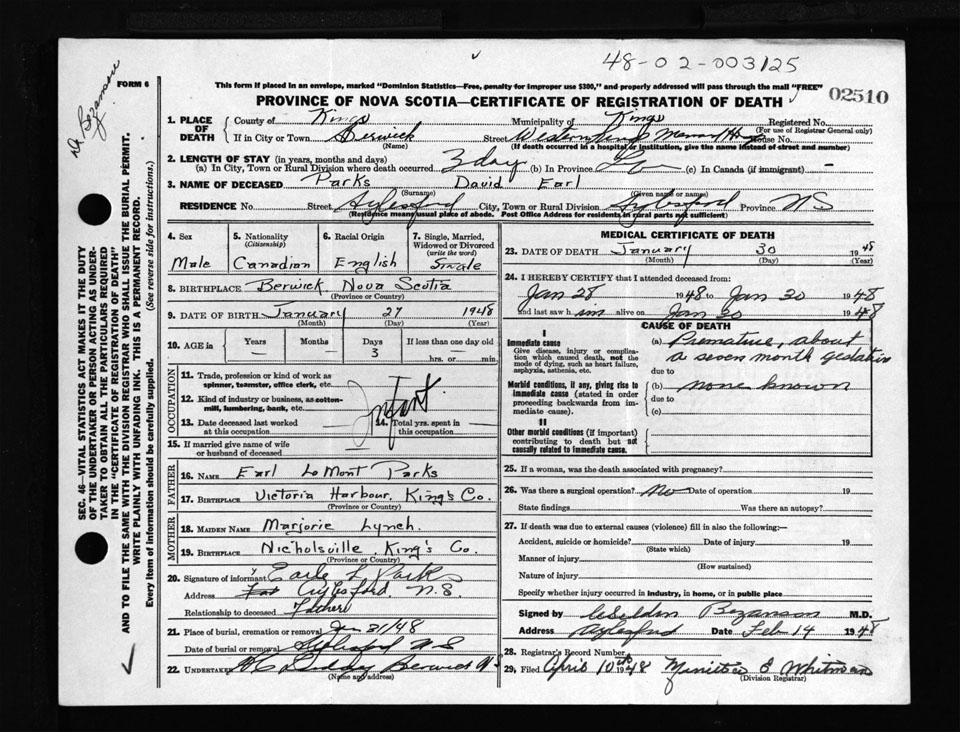 48-02-003125
FORM 6
Dr Bezanson
This form if placed in an envelope, marked "Dominion Statistics—Free, penalty for improper use $300," and properly addressed will pass through the mail "FREE"
02510
PROVINCE OF NOVA SCOTIA—CERTIFICATE OF REGISTRATION OF DEATH
1. PLACE OF DEATH
County of Kings Municipality of Kings Registered No.
(For use of Registrar General only)
If in City or Town Berwick Street Western Kings Memorial Hosp House No.
(Name) (If death occurred in a hospital or institution, give the name instead of street and number)
2. LENGTH OF STAY (in years, months and days)
(a) In City, Town or Rural Division where death occurred 3 day (b) In Province (c) In Canada (if immigrant) –
3. NAME OF DECEASED Parks David Earl
(Surname) (Given name or names)
RESIDENCE No. Street Aylesford City, Town or Rural Division Aylesford Province NS
(Residence means usual place of abode. Post Office Address for residents in rural parts not sufficient)
4. Sex
Male
5. Nationality
(Citizenship)
Canadian
6. Racial Origin
English
7. Single, Married,
Widowed or Divorced
(write the word)
Single
8. BIRTHPLACE Berwick Nova Scotia
(Province or Country)
9. DATE OF BIRTH January 27 1948
(Month) (Day) (Year)
10. AGE in Years Months Days If less than one day old
— — 3 hrs. or min.
OCCUPATION
11. Trade, profession or kind of work as
spinner, teamster, office clerk, etc.
12. Kind of industry or business, as cotton-
mill, lumbering, bank, etc.
Infant
13. Date deceased last worked
at this occupation
14. Total yrs. spent in
this occupation
15. If married give name of wife
or husband of deceased
FATHER
16. NAME Earl LaMont Parks
17. BIRTHPLACE Victoria Harbour, King's Co.
(Province or Country)
MOTHER
18. MAIDEN NAME Marjorie Lynch.
19. BIRTHPLACE Nicholsville, King's Co.
(Province or Country)
20. Signature of informant Earle L Parks
Address Aylesford N.S.
Relationship to deceased Father
21. Place of burial, cremation or removal Jan 31/48
Date of burial or removal Aylesford NS
22. UNDERTAKER Berwick NS
(Name and address)
MEDICAL CERTIFICATE OF DEATH
23. DATE OF DEATH January 30 1948
(Month) (Day) (Year)
24. I HEREBY CERTIFY that I attended deceased from:
Jan 28 1948 to Jan 30 1948
and last saw h im alive on Jan 30 1948
CAUSE OF DEATH
I
Immediate cause
Give disease, injury or complica-
tion which caused death, not the
mode of dying, such as heart failure,
asphyxia, asthenia, etc.
(a) Premature, about
a seven month gestation
due to
Morbid conditions, if any, giving rise to
immediate cause (stated in order
proceeding backwards from im-
mediate cause).
(b) none known
due to
(c)
II
Other morbid conditions (if important)
contributing to death but not
causally related to immediate cause.
25. If a woman, was the death associated with pregnancy?
26. Was there a surgical operation? No Date of operation 19
State findings Was there an autopsy?
27. If death was due to external causes (violence) fill in also the following:—
Accident, suicide or homicide? Date of injury 19
(State which)
Manner of injury
(How sustained)
Nature of injury
Specify whether injury occurred in industry, in home, or in public place
Signed by Bezanson M.D.
Address Aylesford Date Feb 14 1948
28. Registrar's Record Number
29. Filed April 10th 1948 Whitman
(Division Registrar)
SEC. 46—VITAL STATISTICS ACT MAKES IT THE DUTY
OF THE UNDERTAKER OR PERSON ACTING AS UNDER-
TAKER TO OBTAIN ALL THE PARTICULARS REQUIRED
IN THE "CERTIFICATE OF REGISTRATION OF DEATH"
AND TO FILE THE SAME WITH THE DIVISION REGISTRAR WHO SHALL ISSUE THE BURIAL PERMIT.
WRITE PLAINLY WITH UNFADING INK. THIS IS A PERMANENT RECORD.
Every item of information should be carefully supplied. (See reverse side for instructions.)